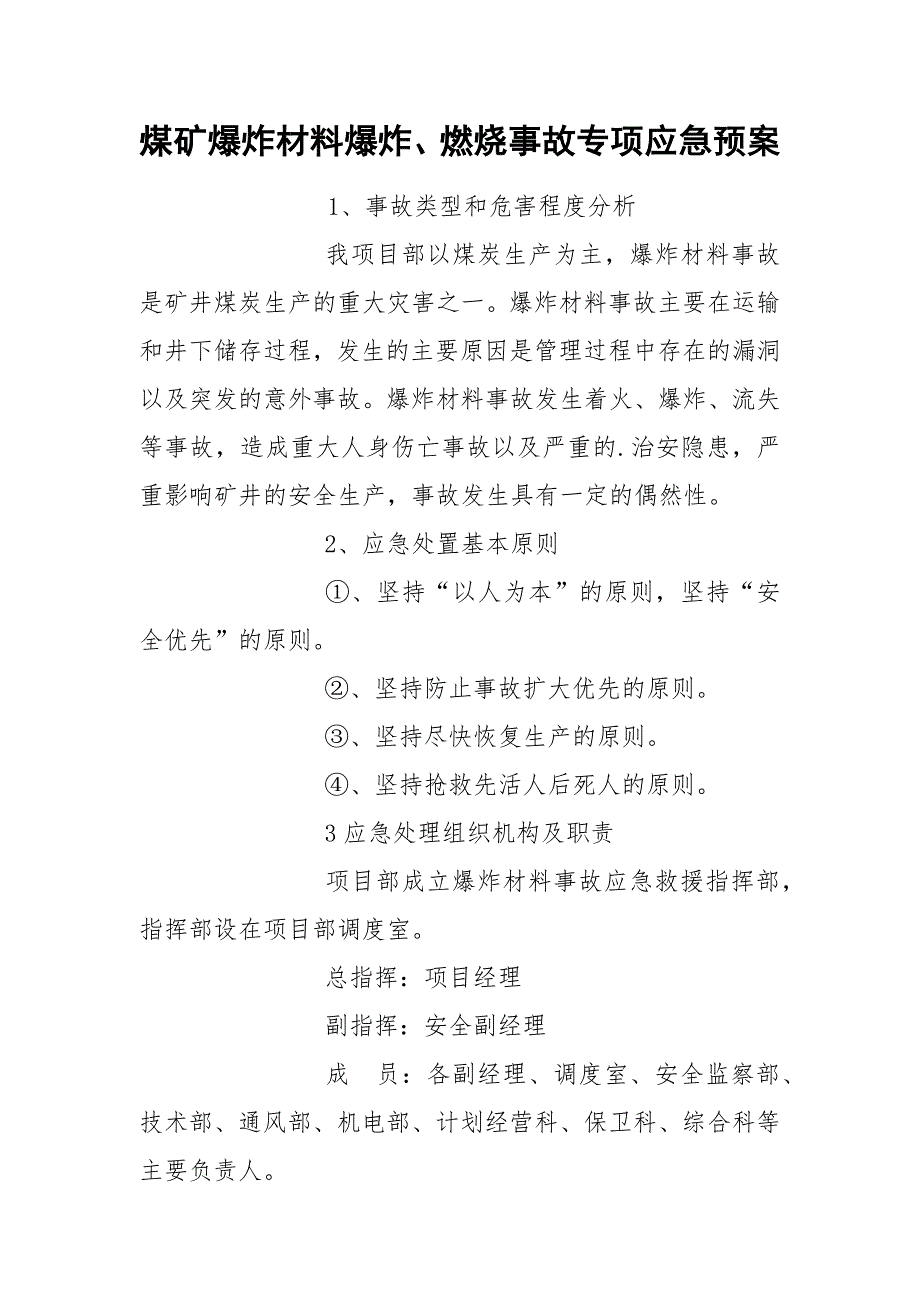 煤矿爆炸材料爆炸、燃烧事故专项应急预案
1、事故类型和危害程度分析
我项目部以煤炭生产为主，爆炸材料事故
是矿井煤炭生产的重大灾害之一。爆炸材料事故主要在运输
和井下储存过程，发生的主要原因是管理过程中存在的漏洞
以及突发的意外事故。爆炸材料事故发生着火、爆炸、流失
等事故，造成重大人身伤亡事故以及严重的.治安隐患，严
重影响矿井的安全生产，事故发生具有一定的偶然性。
2、应急处置基本原则
①、坚持“以人为本”的原则，坚持“安
全优先”的原则。
②、坚持防止事故扩大优先的原则。
③、坚持尽快恢复生产的原则。
④、坚持抢救先活人后死人的原则。
3 应急处理组织机构及职责
项目部成立爆炸材料事故应急救援指挥部，
指挥部设在项目部调度室。
总指挥：项目经理
副指挥：安全副经理
成　员：各副经理、调度室、安全监察部、
技术部、通风部、机电部、计划经营科、保卫科、综合科等
主要负责人。